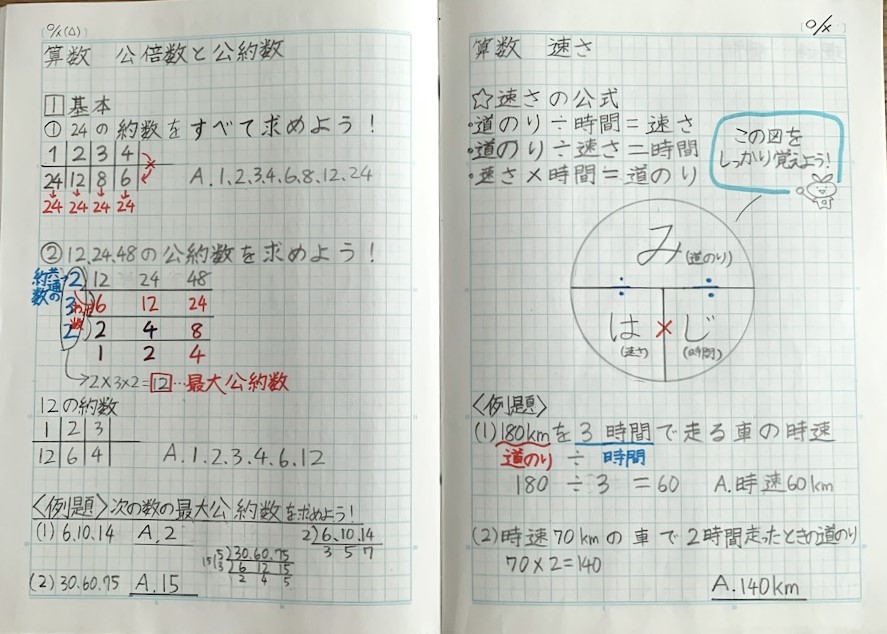 O/X(△)
算数 公倍数と公約数
1 基本
① 24の約数をすべて求めよう！
1 2 3 4
24 12 8 6 A.1,2,3,4,6,8,12,24
24 24 24 24
② 12,24,48の公約数を求めよう！
共通の約数
2 12 24 48
3 6 12 24
2 2 4 8
1 2 4
→2×3×2=12…最大公約数
12の約数
1 2 3
12 6 4 A.1.2.3.4.6.12
〈例題〉次の数の最大公約数を求めよう！
(1) 6.10.14 A.2
2)6.10.14
3 5 7
(2) 30.60.75 A.15
15 5)30.60.75
3)6 12 15
2 4 5
O/X
算数 速さ
☆速さの公式
・道のり÷時間=速さ
・道のり÷速さ=時間
・速さ×時間=道のり
この図を
しっかり覚えよう！
み(道のり)
÷ ÷
は × じ
(速さ) (時間)
〈例題〉
(1)180kmを3時間で走る車の時速
道のり ÷ 時間
180 ÷3 =60 A.時速60km
(2)時速70kmの車で2時間走ったときの道のり
70×2=140
A.140km